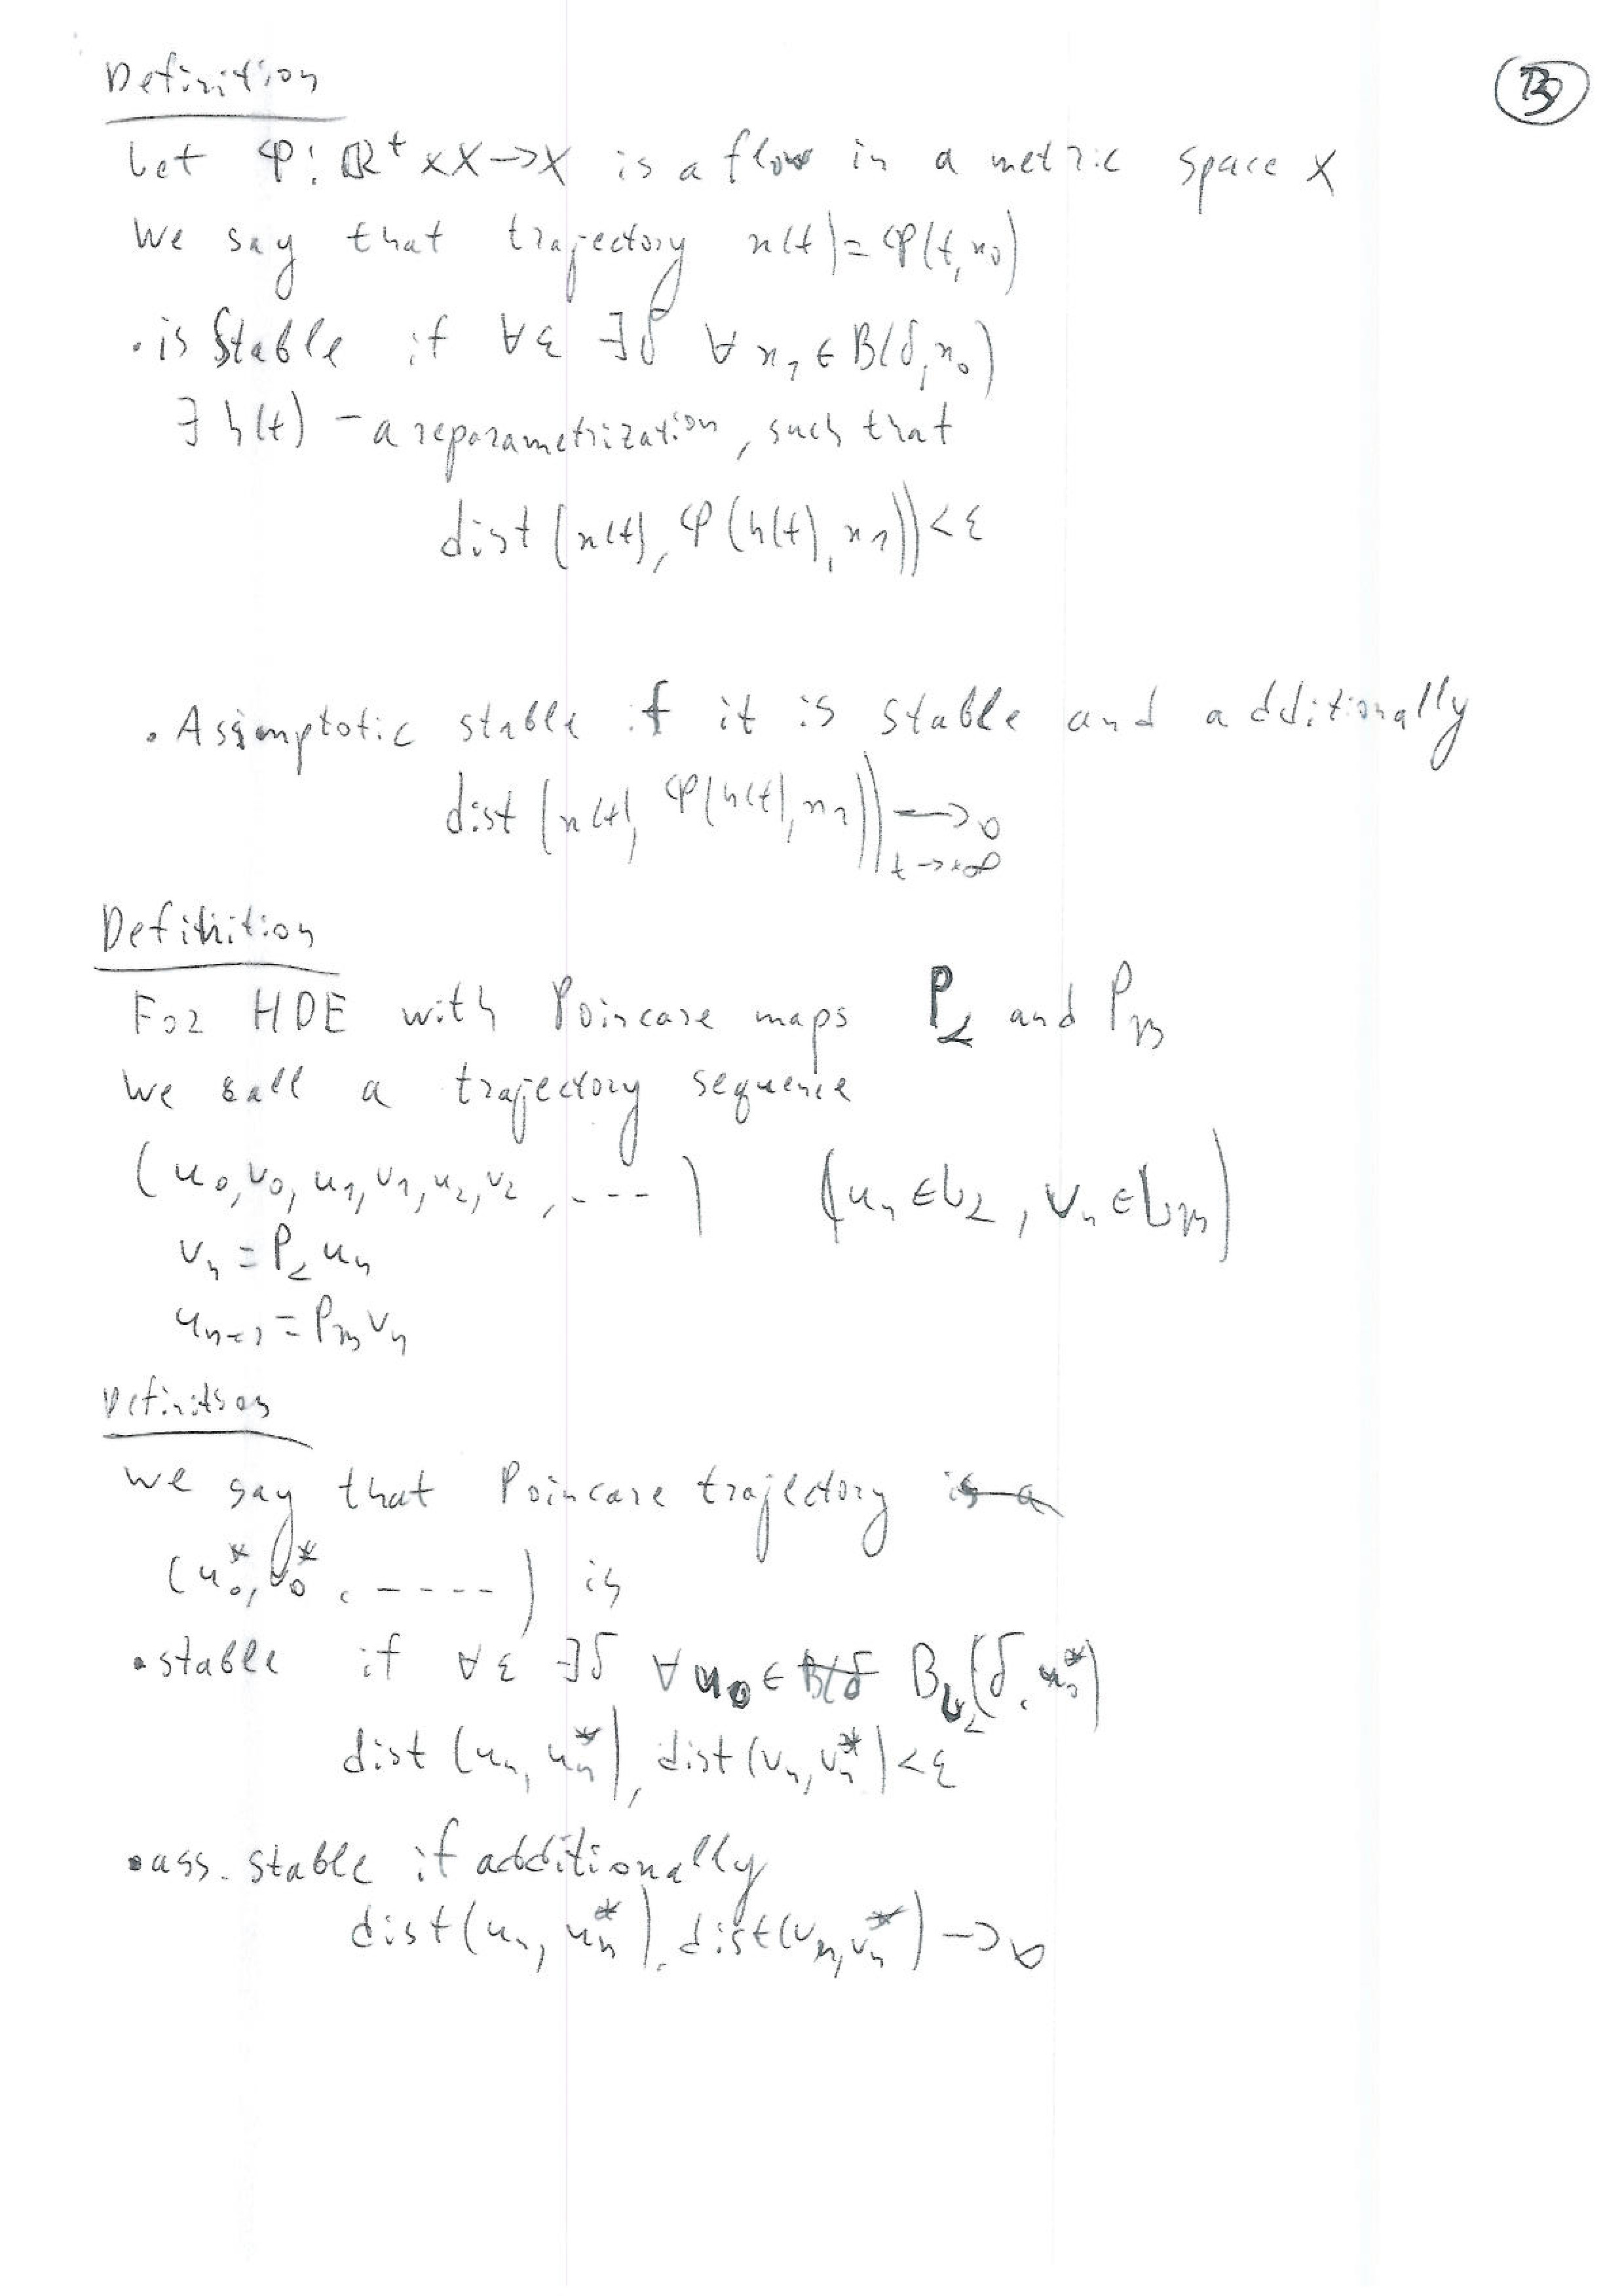 Definition
B
Let φ: ℝ⁺ × X → X is a flow in a metric space X
We say that trajectory x(t) = φ(t, x₀)
• is Stable if ∀ε ∃δ ∀ x₁ ∈ B(δ, x₀)
∃ h(t) – a reparametrization, such that
dist (x(t), φ(h(t), x₁)) < ε
• Assimptotic stable if it is stable and additionally
dist (x(t), φ(h(t), x₁)) → 0
t → +∞
Definition
For HDE with Poincare maps P_α and P_β
We call a trajectory sequence
(u₀, v₀, u₁, v₁, u₂, v₂, ----) (uₙ ∈ L_α, vₙ ∈ L_β)
vₙ = P_α uₙ
uₙ₊₁ = P_β vₙ
Definition
We say that Poincare trajectory is a
(u₀*, v₀*, -----) is
• stable if ∀ε ∃δ ∀ u₀ ∈ B(δ B_{L_α}(δ, u₀*)
dist (uₙ, uₙ*), dist (vₙ, vₙ*) < ε
• ass. stable if additionally
dist(uₙ, uₙ*), dist(vₙ, vₙ*) → 0